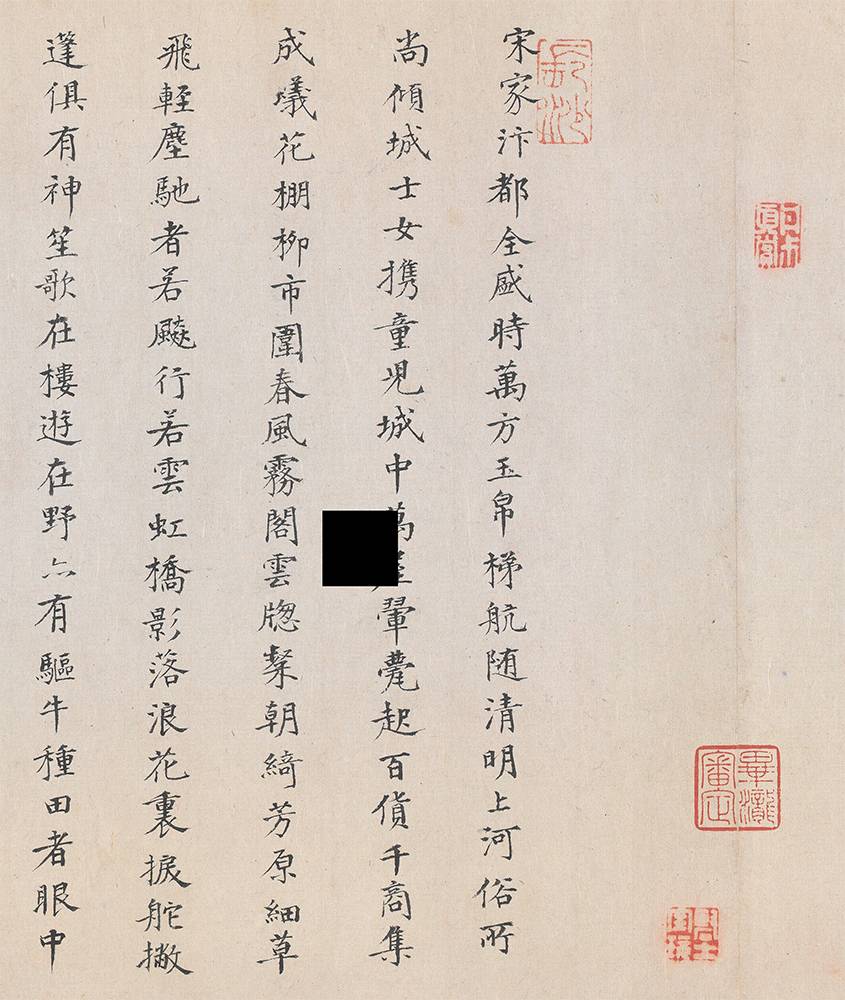 畢瀧
審定
長沙
宋家汴都全盛時萬方玉帛梯航随清明上河俗所
尚傾城士女携童児城中萬翬甍起百貨千商集
成蟻花棚柳市圍春風霧閣雲牕粲朝綺芳原細草
飛輕塵馳者若飈行若雲虹橋影落浪花裏捩舵撇
篷俱有神笙歌在樓遊在野亦有驅牛種田者眼中